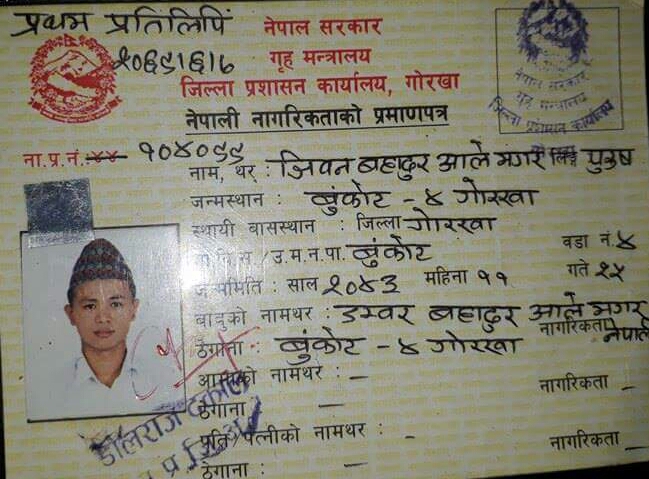 प्रथम प्रतिलिपि
नेपाल सरकार
२०६९।६।७
गृह मन्त्रालय
जिल्ला प्रशासन कार्यालय, गोरखा
नेपाली नागरिकताको प्रमाणपत्र
नेपाल सरकार
गृह मन्त्रालय
जिल्ला प्रशासन कार्यालय
ना.प्र.नं. ४४ १०४०९९
नाम, थर : जिवन बहादुर आले मगर लिङ्ग पुरुष
जन्मस्थान : बुंकोट - ४ गोरखा
स्थायी बासस्थान : जिल्ला गोरखा
गा.वि.स./उ.म.न.पा. बुंकोट वडा नं. ४
जन्ममिति : साल २०४३ महिना ११ गते २५
बाबुको नामथर : डम्वर बहादुर आले मगर
नागरिकता नेपाली
ठेगाना : बुंकोट - ४ गोरखा
आमाको नामथर : — नागरिकता —
ठेगाना : —
पति/पत्नीको नामथर : - नागरिकता —
ठेगाना : —
डोलराज ढकाल